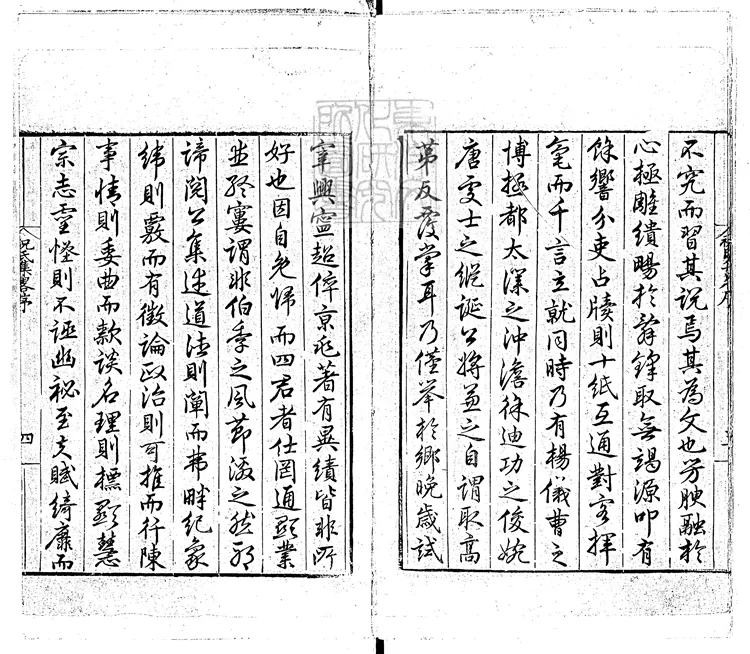 不究而習其說焉其為文也芳腴融於
心極雕繢暢於辭鋒取無竭源叩有
餘響分吏占牘則十紙互通對客揮
毫而千言立就同時乃有楊儀曹之
博極都太深之沖澹徐迪功之俊婉
唐處士之縱誕公將兼之自謂取高
第反覆掌耳乃僅舉於鄉晚歲試
宰興寧超倅京兆著有異績皆非所
好也因自免歸而四君者仕罔通顯業
並終窶謂非伯季之風節激之然耶
諦閱公集述道法則闡而弗畔紀象
緯則覈而有徵論政治則可推而行陳
事情則委曲而款談名理則標顯慧
宗志靈怪則不誣幽秘至夫賦綺靡而
祝氏集畧序
四